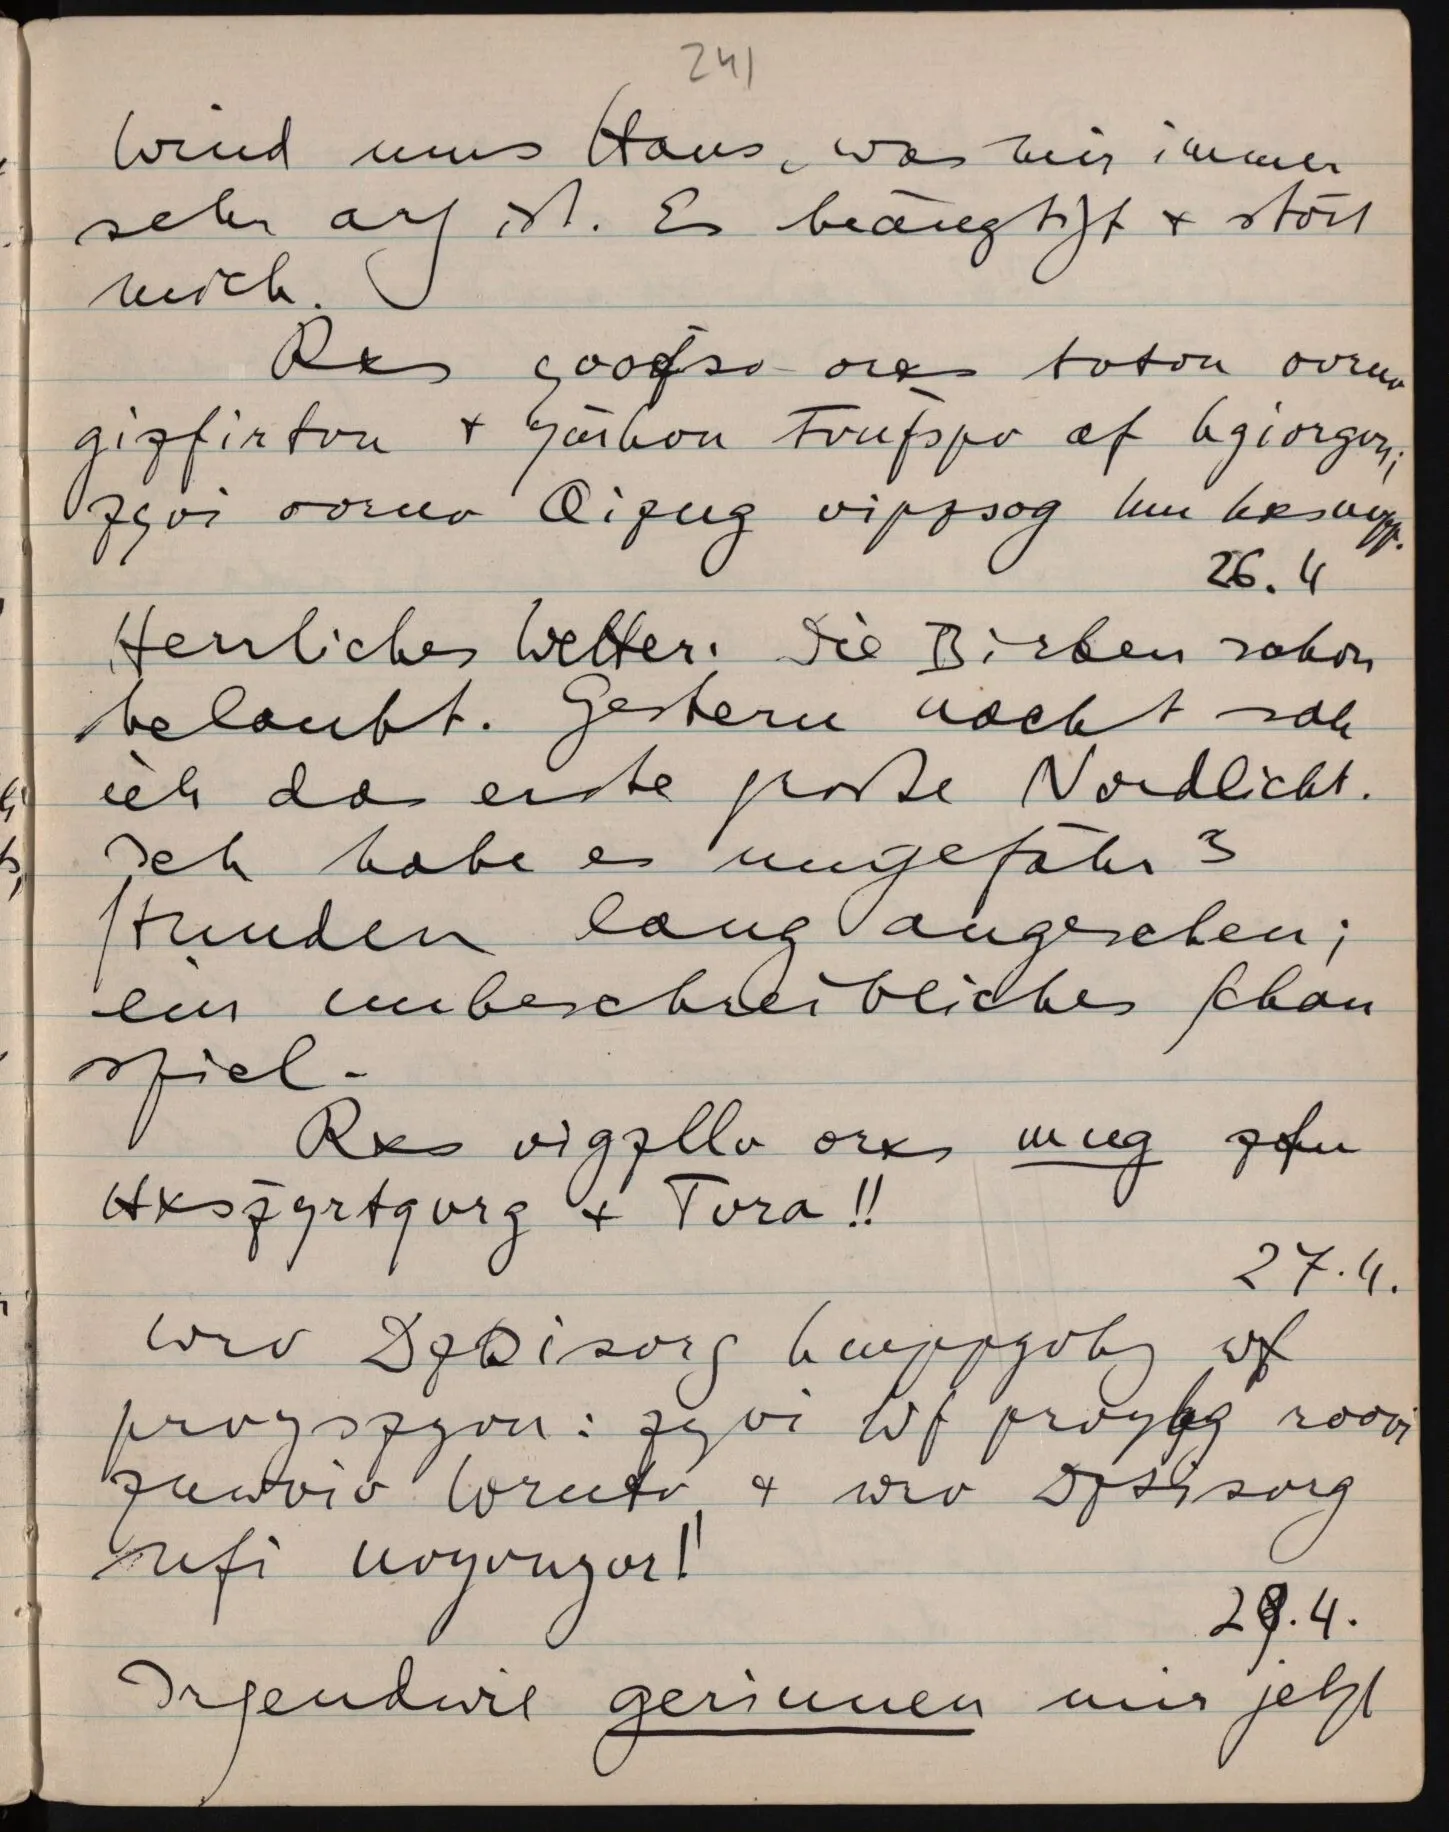 241
Wind ums Haus, was mir immer
sehr arg ist. Es beängstigt & stört
mich.
Rxs yvoüsv orxs tvtvn ovrnv
gizfirtvn & yöhvn Tvüspv af hgivrgvn;
zyvi ovrnv Qizug vipzsog hm hxsnvpp.
26.4
Herrliches Wetter. Die Birken schon
belaubt. Gestern nacht sah
ich das erste große Nordlicht.
Ich habe es ungefähr 3
Stunden lang angesehen;
ein unbeschreibliches Schau
spiel. –
Rxs vigzllv orxs mug zfu
Hxszyrtqvrg & Tvra!!
27.4.
Wrv Dzsisvrg hmppgvhg wf
prvyszyvn: zyvi wf prvyhg roovi
znwviv Wrntv & wrv Dzsisvrg
nfi nvyvnyvr!!
29.4.
Irgendwie gerinnen mir jetzt